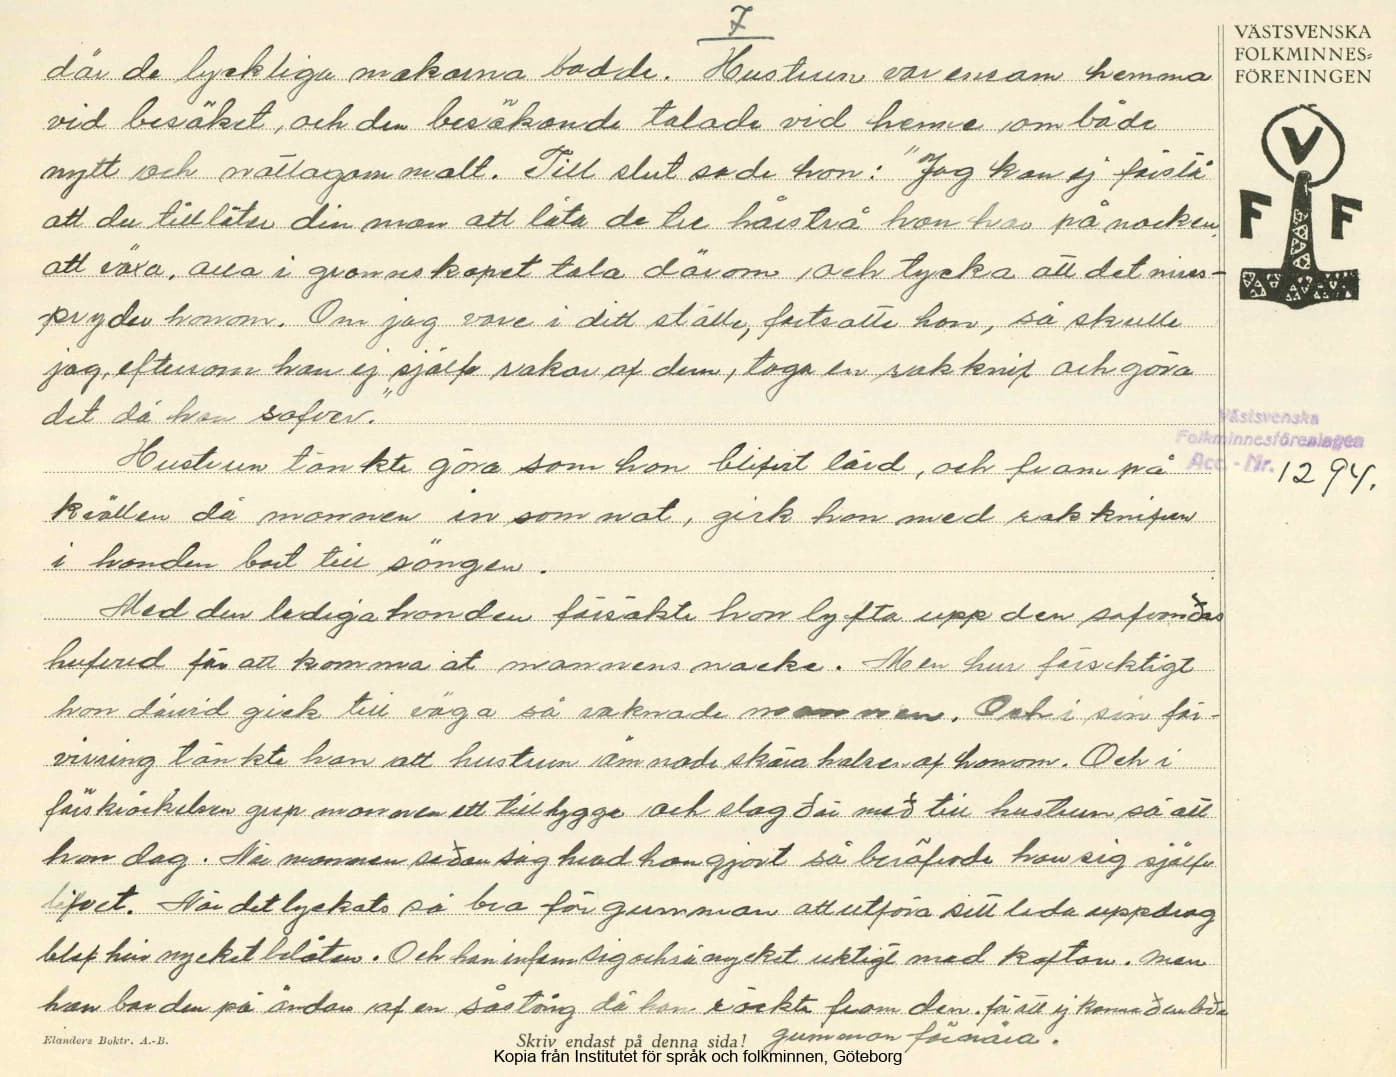 7
VÄSTSVENSKA
FOLKMINNES=
FÖRENINGEN
V
F F
där de lyckliga makarna bodde. Hustrun var ensam hemma
vid besöket, och den besökande talade vid henne om både
nytt och rättagammalt. Till slut sade hon: "Jag kan ej förstå
att du tillåter din man att låta de tre hårstrå han har på nacken
att växa, alla i grannskapet tala därom, och tycka att det miss-
pryder honom. Om jag vore i ditt ställe, fortsatte hon, så skulle
jag, eftersom han ej själf rakar af dem, taga en rakknif och göra
det då han sofver."
Hustrun tänkte göra som hon blifvit lärd, och fram på
kvällen då mannen insomnat, gick hon med rakknifven
i handen bort till sängen.
Med den lediga handen försökte hon lyfta upp den sofvandes
hufvud för att komma åt mannens nacke. Men hur försiktigt
hon därvid gick till väga så vaknade mannen. Och i sin för-
virring tänkte han att hustrun ämnade skära halsen af honom. Och i
förskräckelsen grep mannen ett tillhygge och slog där med till hustrun så att
hon dog. När mannen sedan såg hvad han gjort så beröfvade han sig själfv
lifvet. När det lyckats så bra för gumman att utföra sitt leda uppdrag
blef hin mycket belåten. Och han infann sig också mycket riktigt med koftan. Men
han bar den på ändan af en såstång då han räckte fram den. för att ej komma den leda
gumman för nära.
Västsvenska
Folkminnesföreningen
Acc. - Nr. 1294.
Elanders Boktr. A.-B.
Skriv endast på denna sida!
Kopia från Institutet för språk och folkminnen, Göteborg